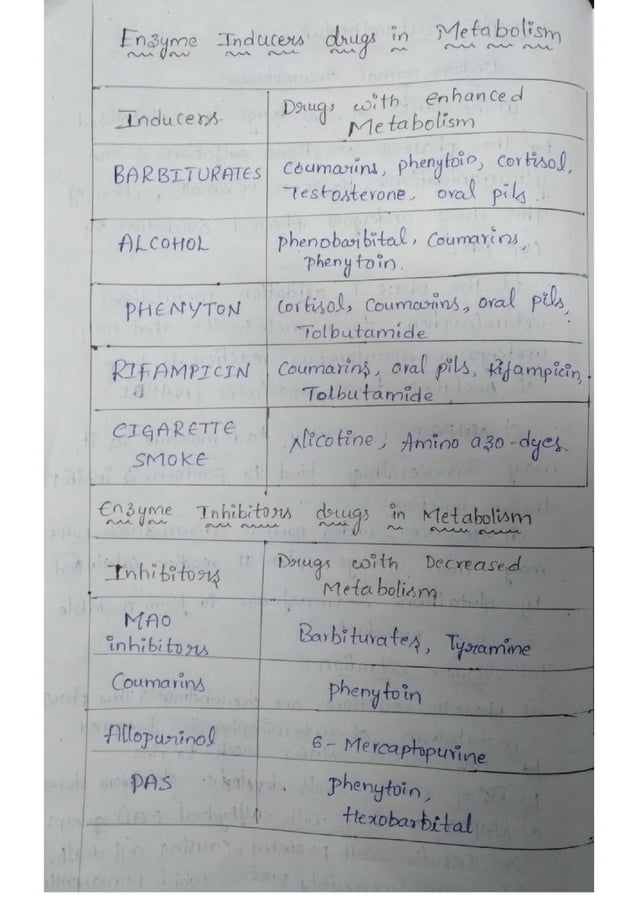 Enzyme Inducers drugs in Metabolism
Inducers
Drugs with enhanced
Metabolism
BARBITURATES
Coumarins, phenytoin, cortisol,
Testosterone, oral pils.
ALCOHOL
phenobaribital, Coumarins,
phenytoin.
PHENYTON
Cortisol, Coumarins, oral pils,
Tolbutamide
RIFAMPICIN
Coumarins, oral pils, Rifampicin,
Tolbutamide
CIGARETTE
SMOKE
Nicotine, Amino azo-dyes.
Enzyme Inhibitors drugs in Metabolism
Inhibitors
Drugs with Decreased
Metabolism
MAO
inhibitors
Barbiturates, Tyramine
Coumarins
phenytoin
Allopurinol
6-Mercaptopurine
PAS
phenytoin,
Hexobarbital